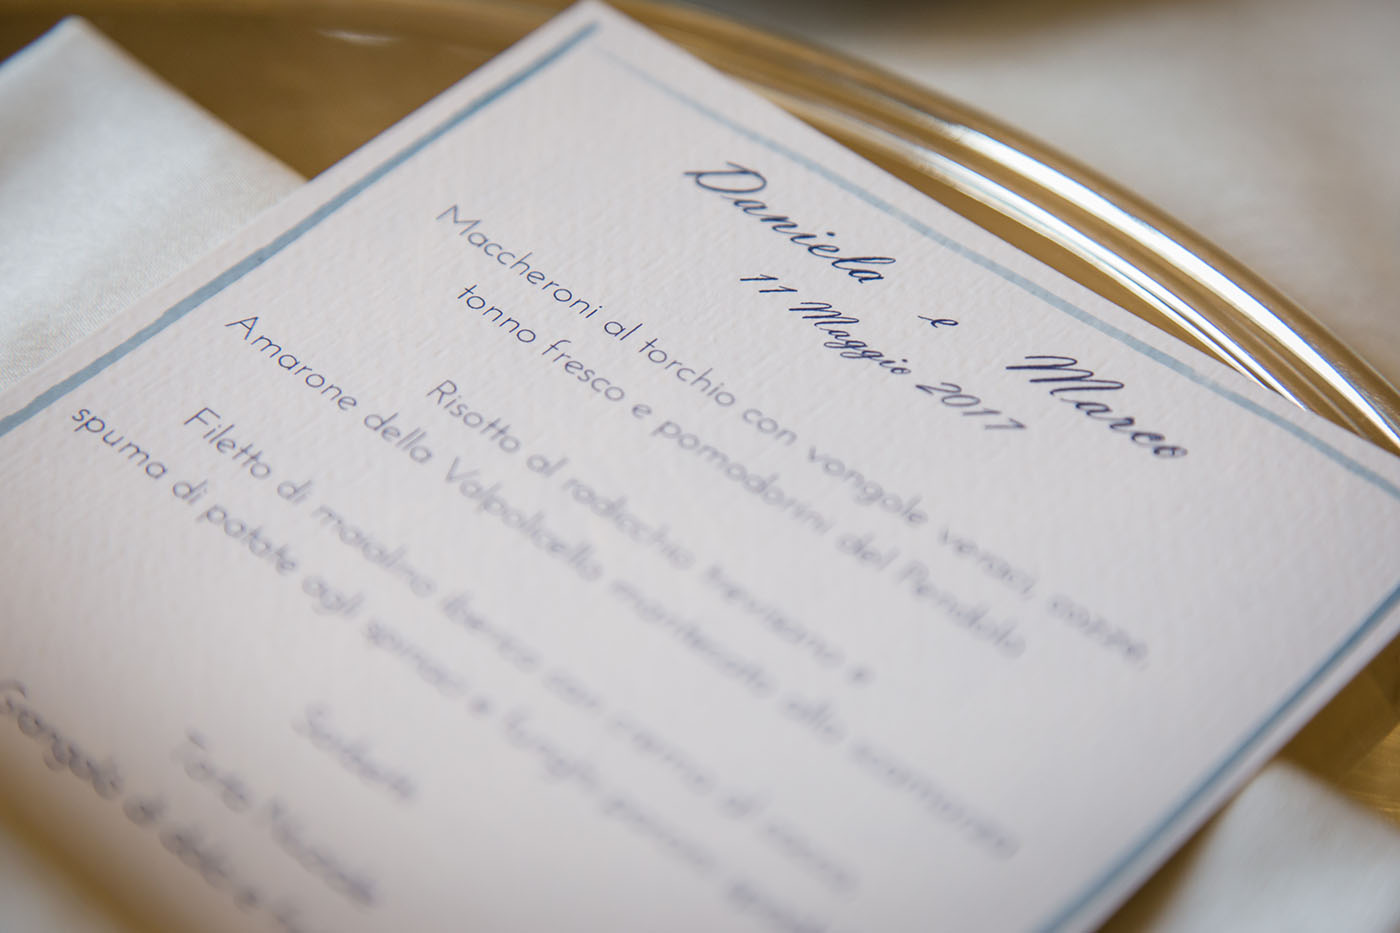 Daniela e Marco
11 Maggio 2017
Maccheroni al torchio con vongole veraci, cozze,
tonno fresco e pomodorini del Pendolo
Risotto al radicchio trevisano e
Amarone della Valpolicella mantecato allo
Filetto di maialino iberico con crema di
spuma di patate agli spinaci e funghi porcini
Sorbetto
Torta Nuziale
di dolci e